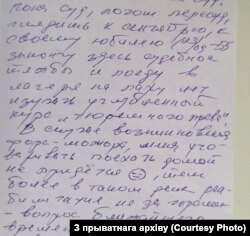 пока суд, потом пересуд,
глядишь к сентябрю, к
своему юбилею
закону здесь судебное
и поеду в
лагеря на пару лет
изучать углубленный
курс „тюремного права".
В случае возникновения
форс-мажора, меня уго-
варивать поехать домой
не придётся ☺, тем
более в таком деле реа-
билитация не за горами
- вопрос ближайшего
времени
З прыватнага архіву (Courtesy Photo)